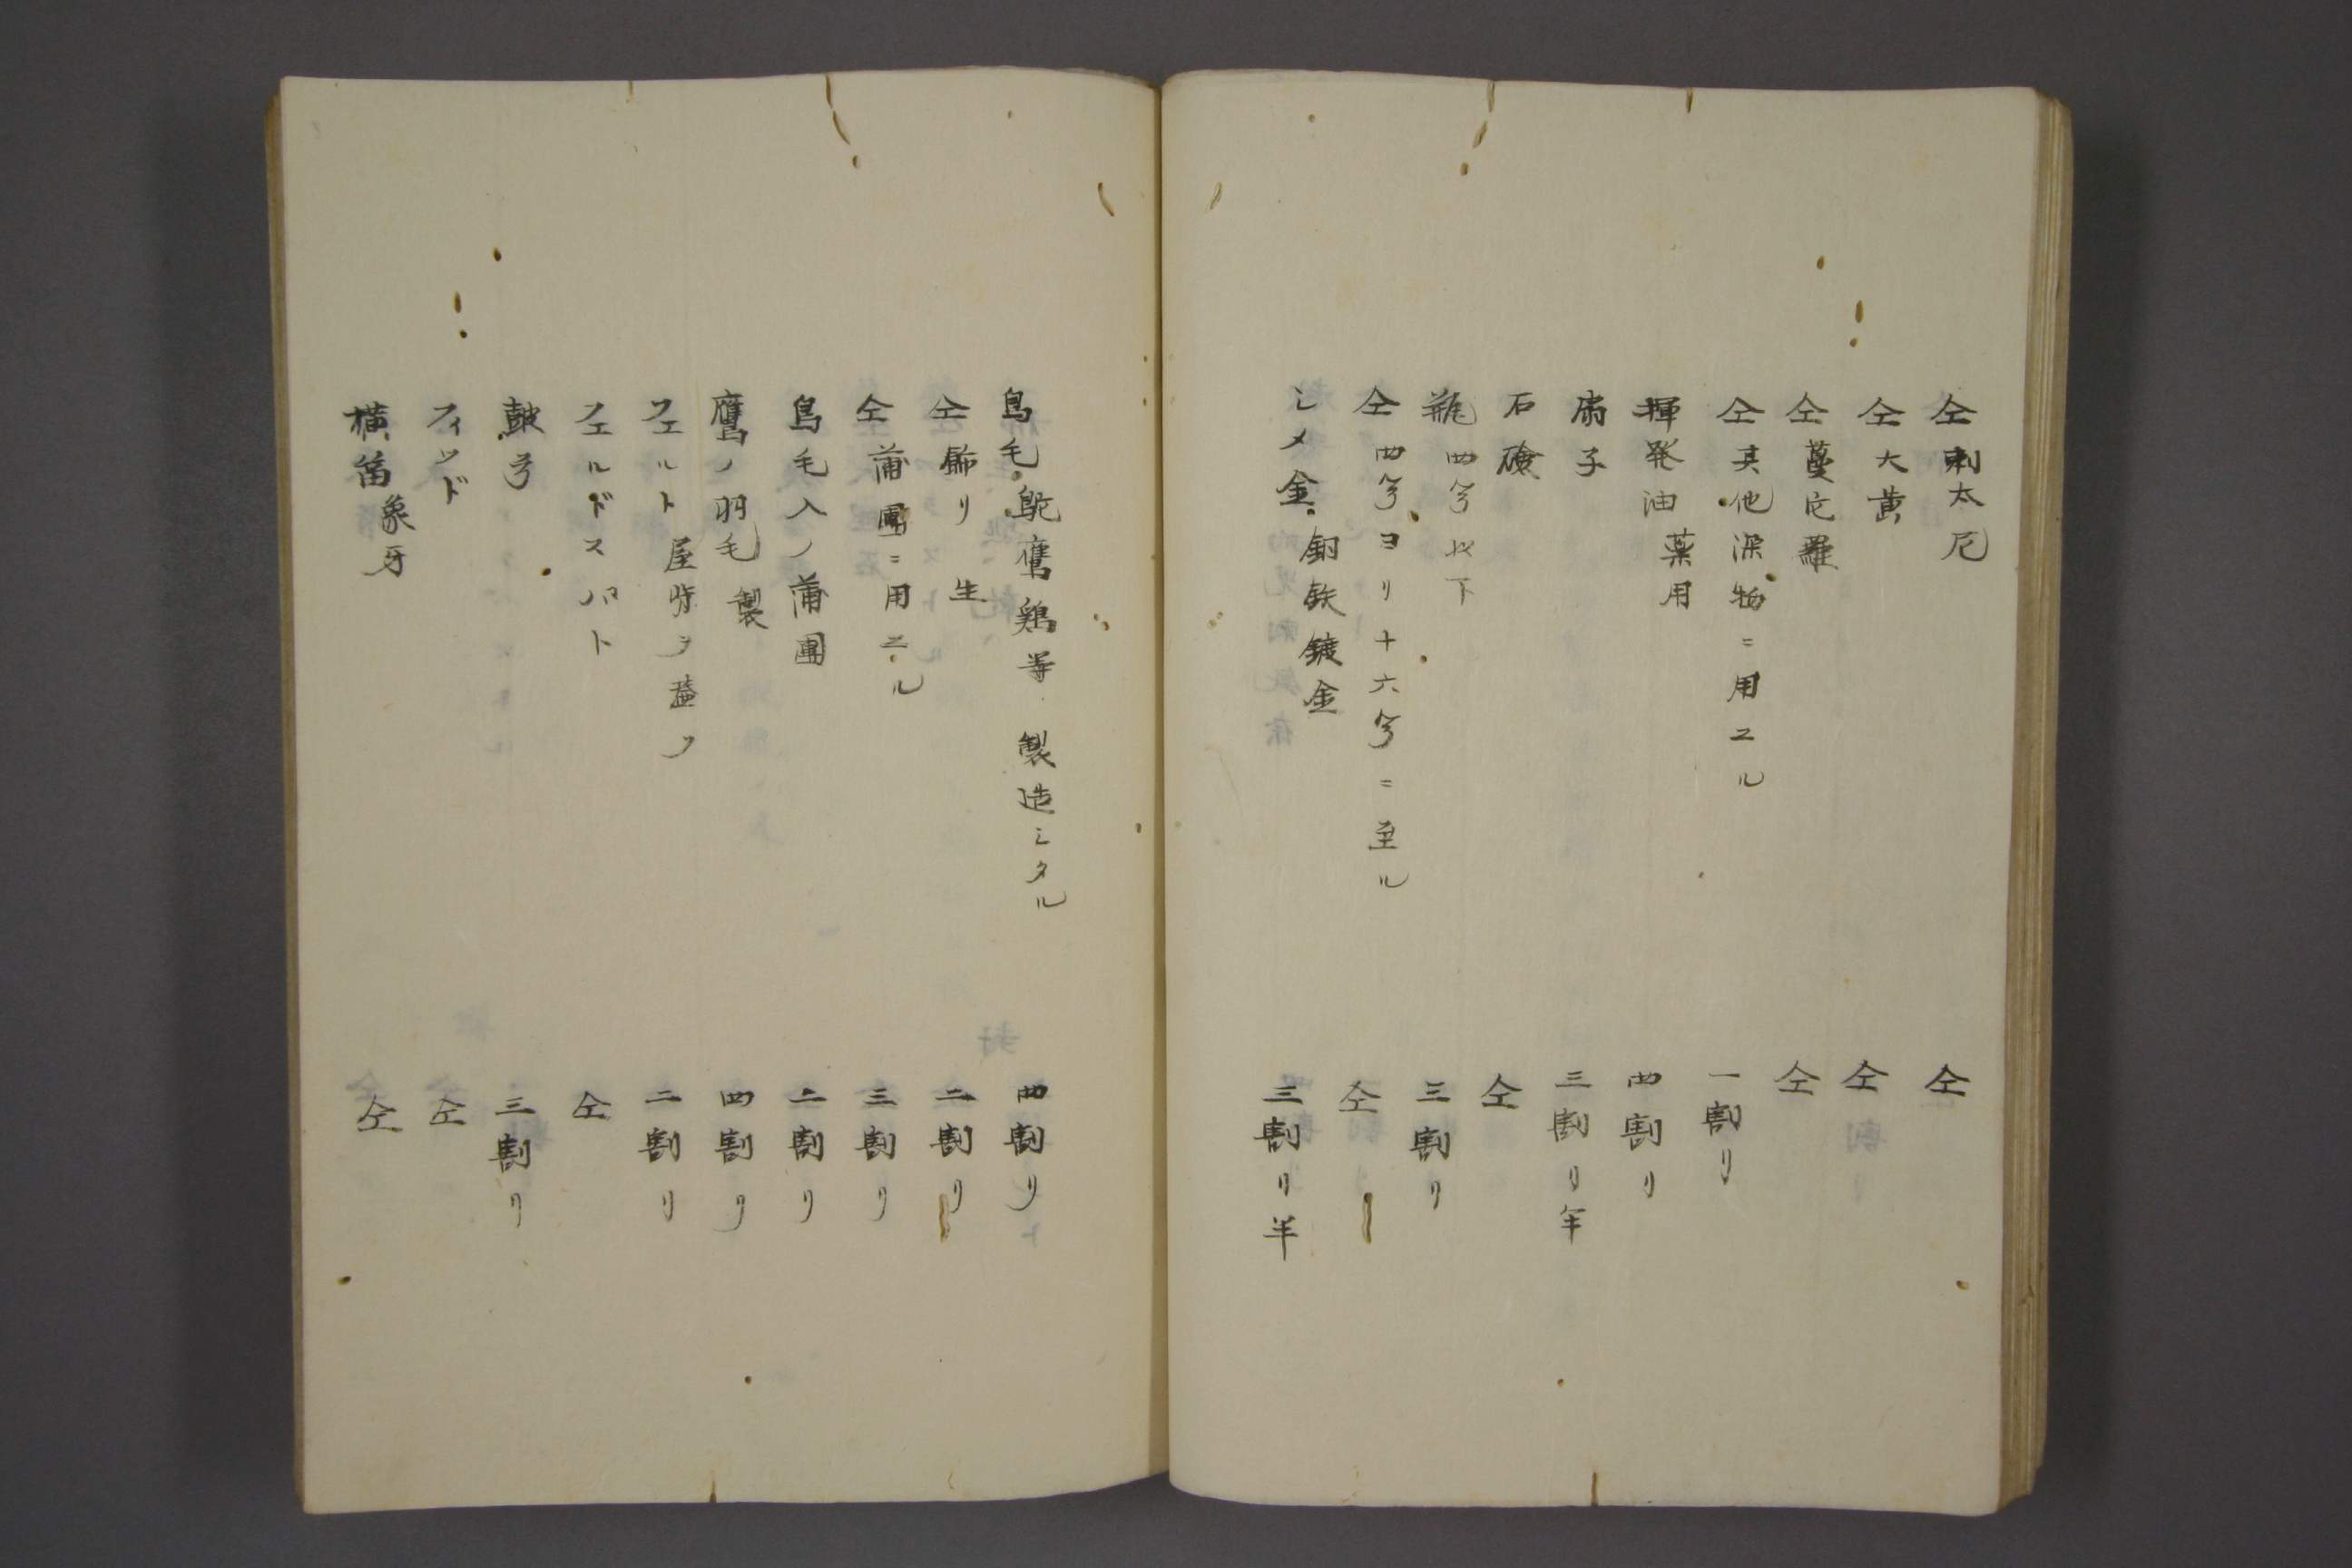 仝 刺太尼 仝
仝 大黄 仝
仝 蔓陀羅 仝
仝 其他深物ニ用ユル 一割リ
揮発油 薬用 四割リ
扇子 三割リ半
石礆 仝
瓶 四兮以下 三割リ
仝 四兮ヨリ十六兮ニ至ル 仝
シメ金 銅鉄鍍金 三割リ半
鳥毛 鴕鷹鶏等 製造シタル 四割リ
仝 飾リ 生 二割リ
仝 蒲團ニ用ユル 三割リ
鳥毛入ノ蒲團 二割リ
鷹ノ羽毛 製 四割リ
フェルト 屋背ヲ葢フ 二割リ
フェルドスパト 仝
皷弓 三割リ
フィッド 仝
横笛 象牙 仝